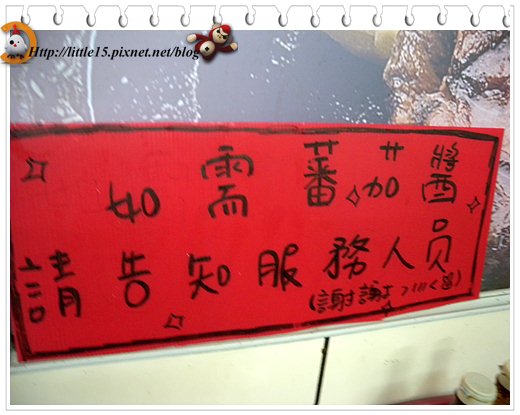 Http://little15.pixnet.net/blog
如需蕃茄醬
請告知服務人员
(謝謝